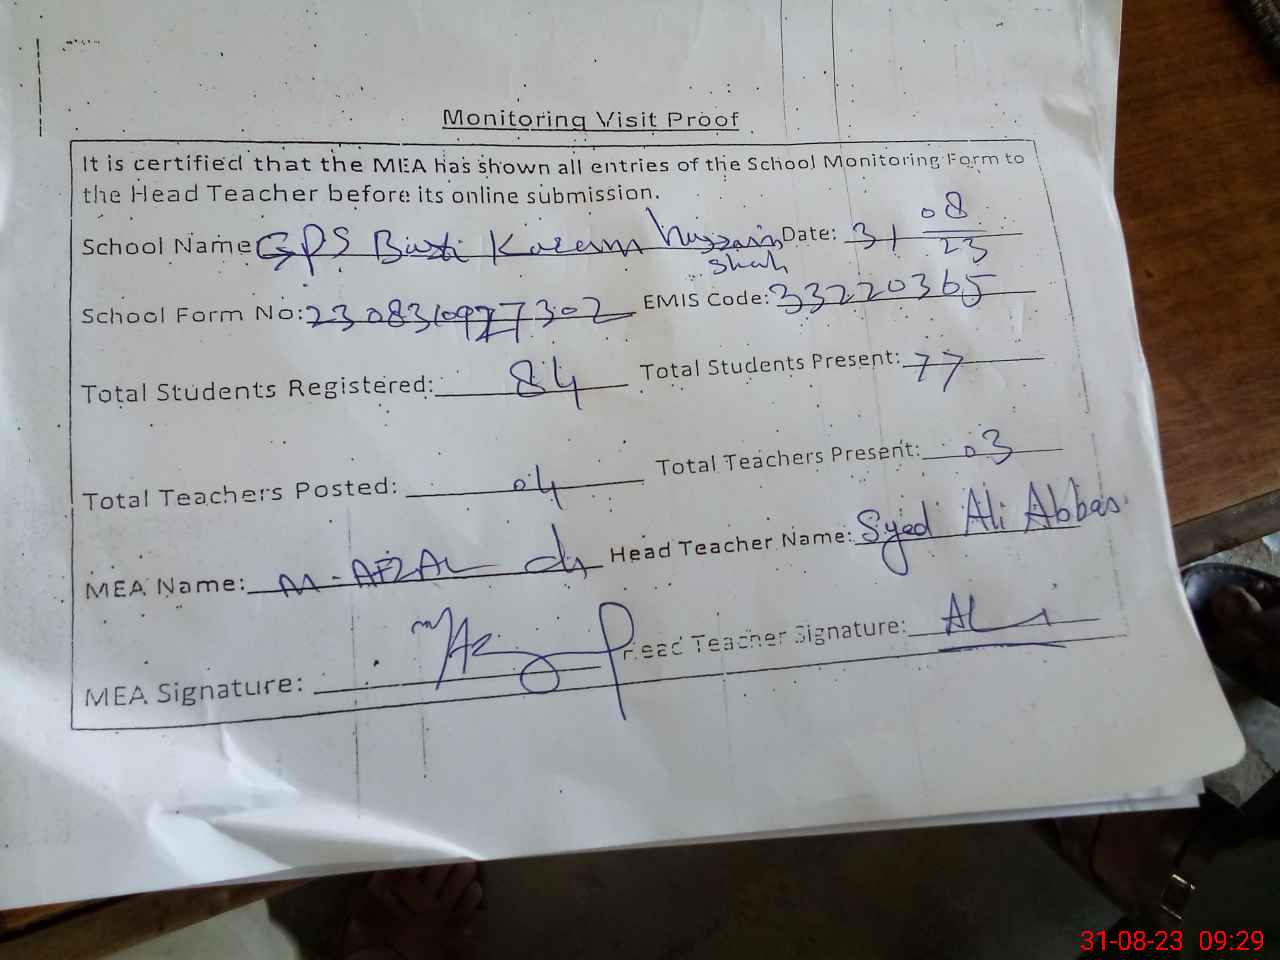 Monitoring Visit Proof
It is certified that the MEA has shown all entries of the School Monitoring Form to
the Head Teacher before its online submission.
School Name GPS Basti Kazam Hussain Shah Date: 31 08/23
School Form No: 230831 302 EMIS Code: 33220365
Total Students Registered: 84 Total Students Present: 77
Total Teachers Posted: 04 Total Teachers Present: 03
MEA Name: M-AFZAL Head Teacher Name: Syed Ali Abbas
MEA Signature: Head Teacher Signature:
31-08-23 09:29